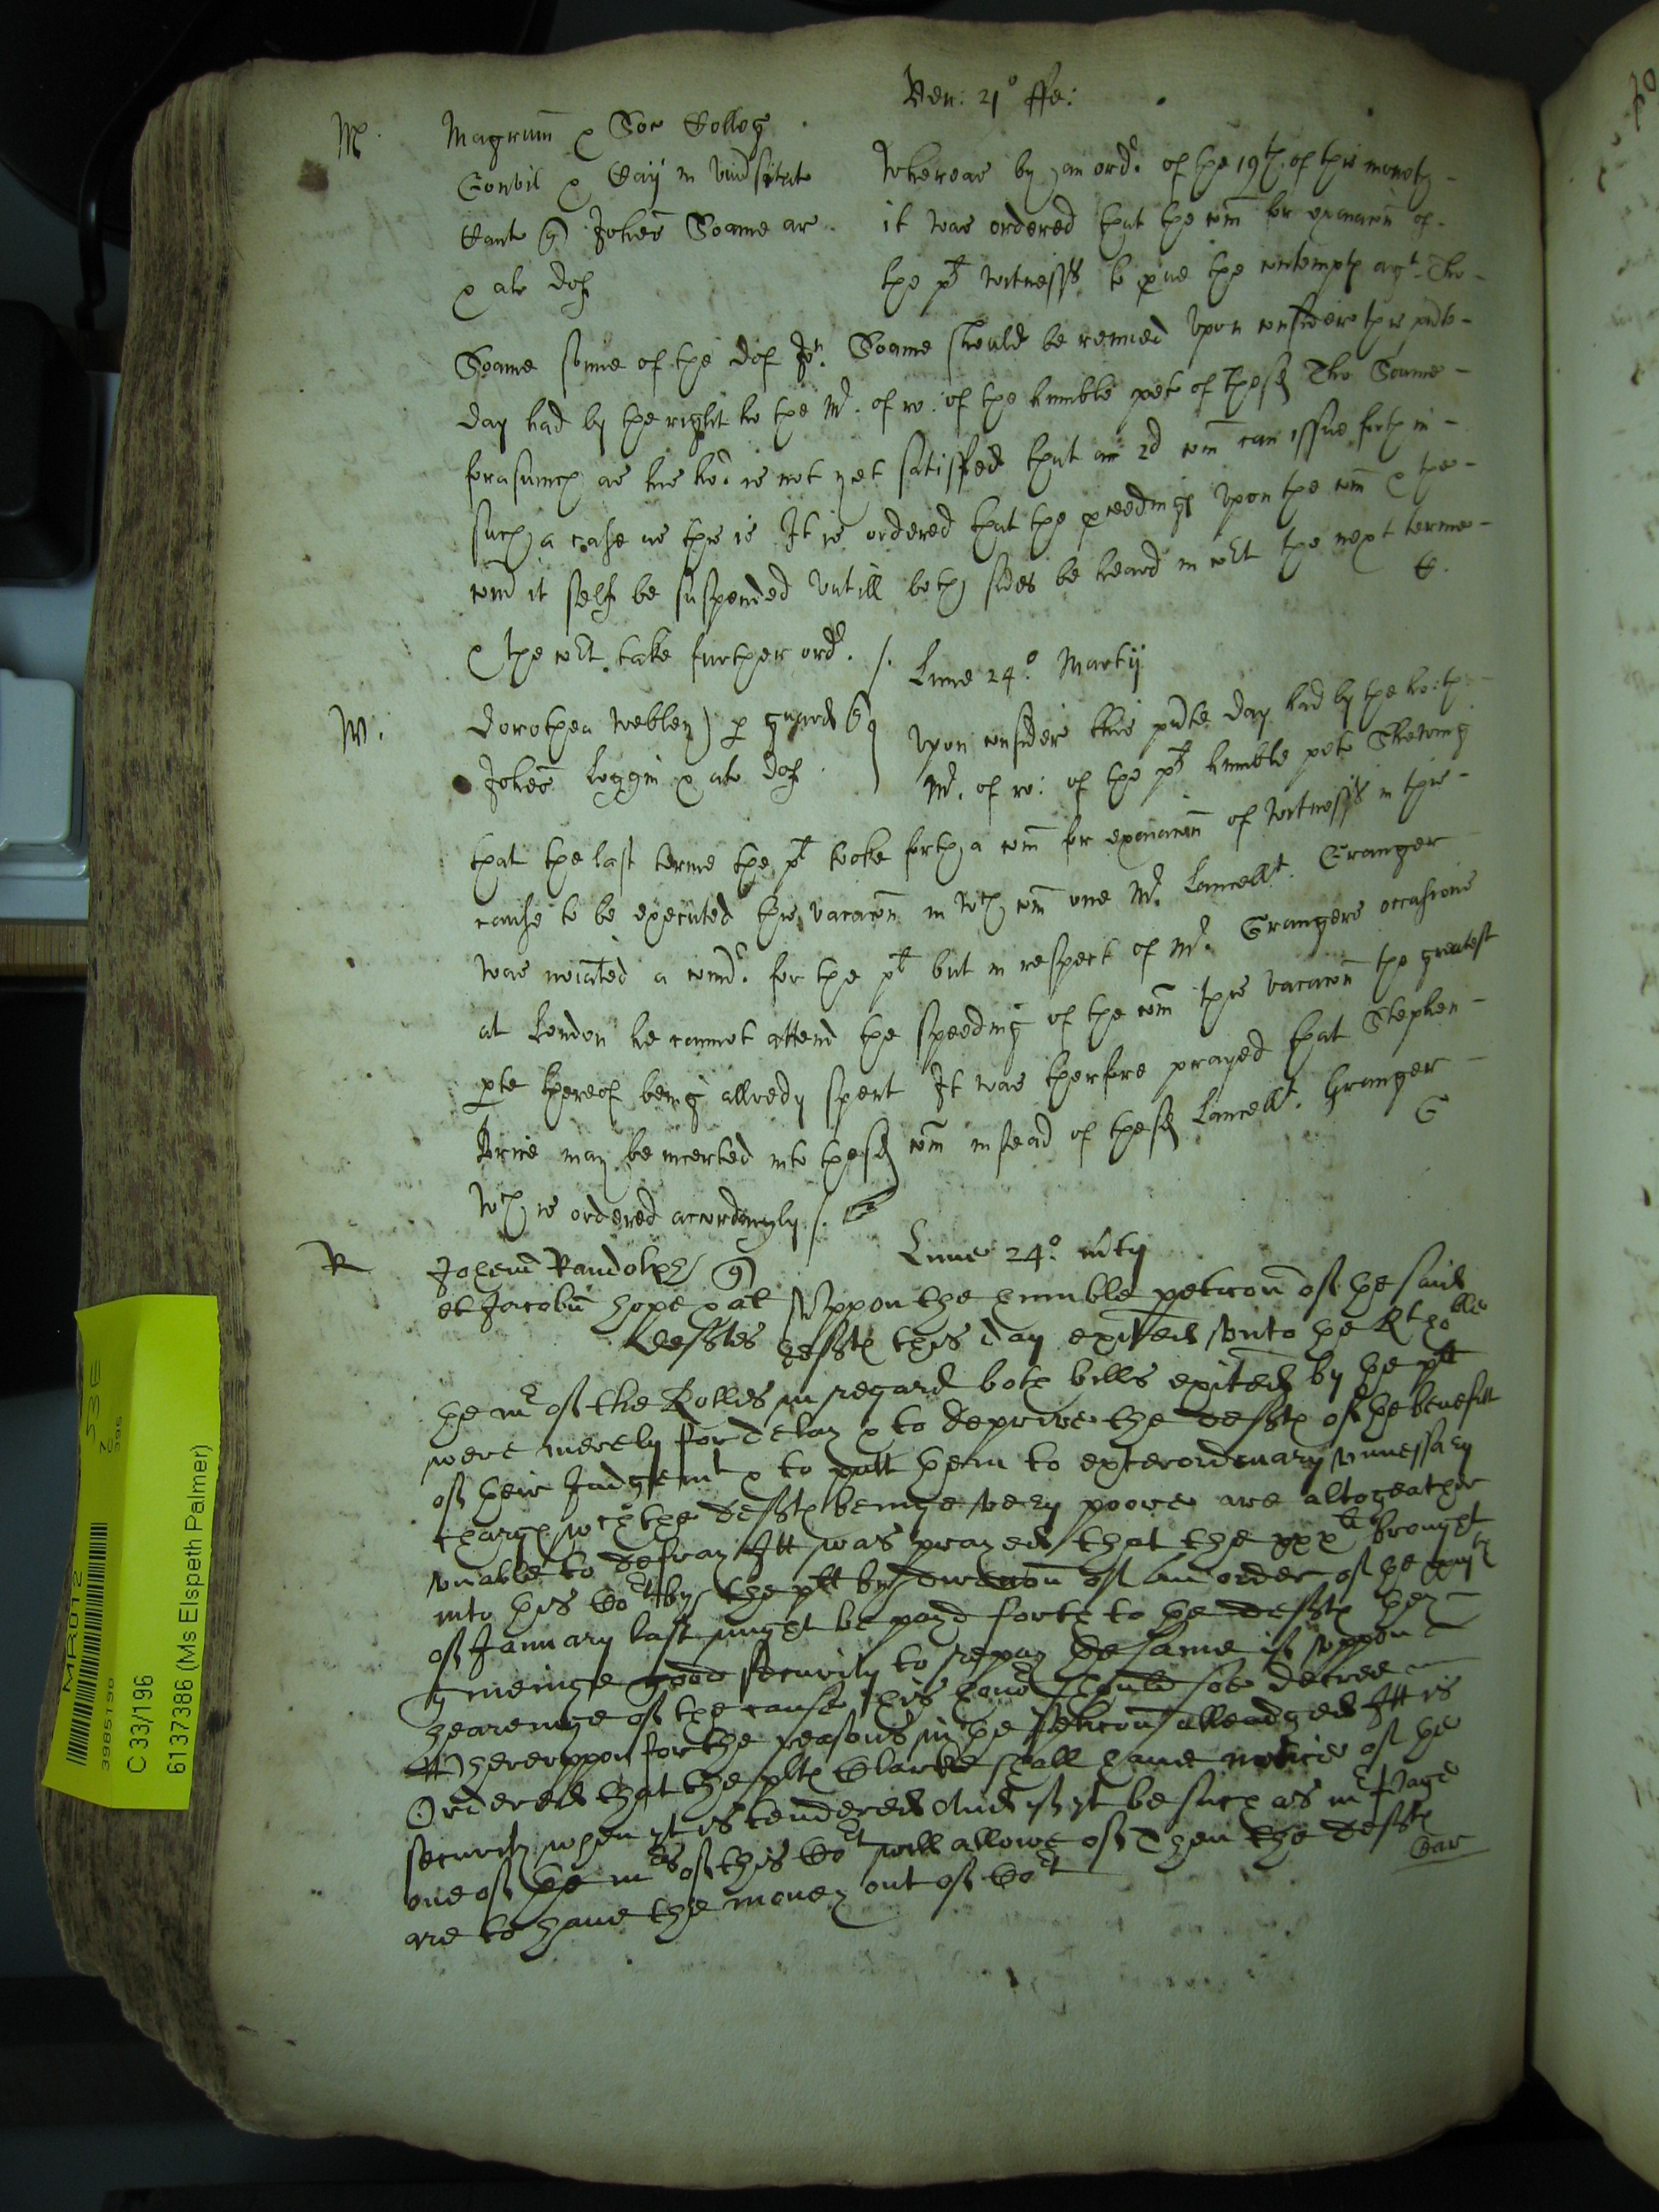 Ven: 21° ffe:
M. Magrum & Soc Colleg
Gonvil & Caij in Universitate
Cante q Johes Soame ar
& als def
Whereas by an ord. of the 19th of this moneth
it was ordered that the com for exaiacon of
the pt witnesses to prve the contempt agt Tho
Soame sonne of the def Jon. Soame should be renued Vpon consideracon this pnte
day had by the right ho the Mr. of ro: of the humble peto of the sd Tho Soame
forasmuch as his ho: is not yet satisfyed that an 2d com can issue forth in
such a case as this is It is ordered that the pceedings vpon the com & the
com it self be suspended vntill both sides be heard in cort the next terme
& the cort take further ord. /.
C.
Lune 24° Martij
W. Dorothea Webley p guard q
Johes Loggin & als def
Vpon consider this pnte day had by the ho: the
Mr. of ro: of the pt humble peto Shewing
that the last terme the pt tooke forth a com for exaiacon of witnesses in this
cause to be executed this vacacon in wch com one Mr. Lancellt. Granger
was noiated a comr. for the pt but in respect of Mr. Grangers occasions
at London he cannot attend the speeding of the com this vacacon the greatest
pte thereof being allredy spent It was therfore prayed that Stephen
Brice may be incerted into the sd com instead of the sd Lancellt. Granger
wch is ordered accordingly /.
G
Lune 24° mtij
R Johem Randolph q
et Jacobu hope & al
Vppon the humble peticon of the said
deftes this day exited vnto the Rt hoble
the mr of the Rolles in regard both bills exited by the plt
were merely for delay & to deprive the deftes of the benefitt
of their Judgemt & to putt them to exterordenary vnnessary
charge wch the deftes beinge very poore are altogeather
vnable to defray Itt was prayed that the xxxli brought
into this Cort by the plt by of an order of the
of January last might be payd forth to the deftes they
giveinge good security to repay the same if vppon
heareinge of the cause this honor should soe decree
Wherevppon for the reasons in the peticon alleadged Itt is
Ordered that the plts Clarke shall have notice of the
security when it is tendered And if it be such as mr Page
one of the mrs of this Cort will allowe of Then the deftes
are to have the money out of Cort
Car
MR012
3985190
C 33/196
6137386 (Ms Elspeth Palmer)
53E